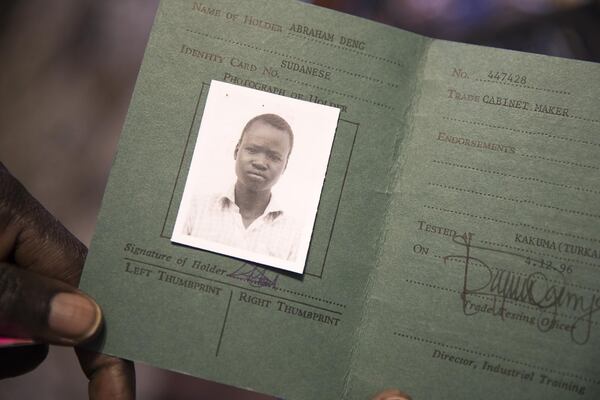 Name of Holder ABRAHAM DENG
Identity Card No. SUDANESE
Photograph of Holder
Signature of Holder
Left Thumbprint
Right Thumbprint
No. 447428
Trade CABINET MAKER
Endorsements
Tested at KAKUMA (TURKA
On 4-12-96
Trade Testing Officer
Director, Industrial Training